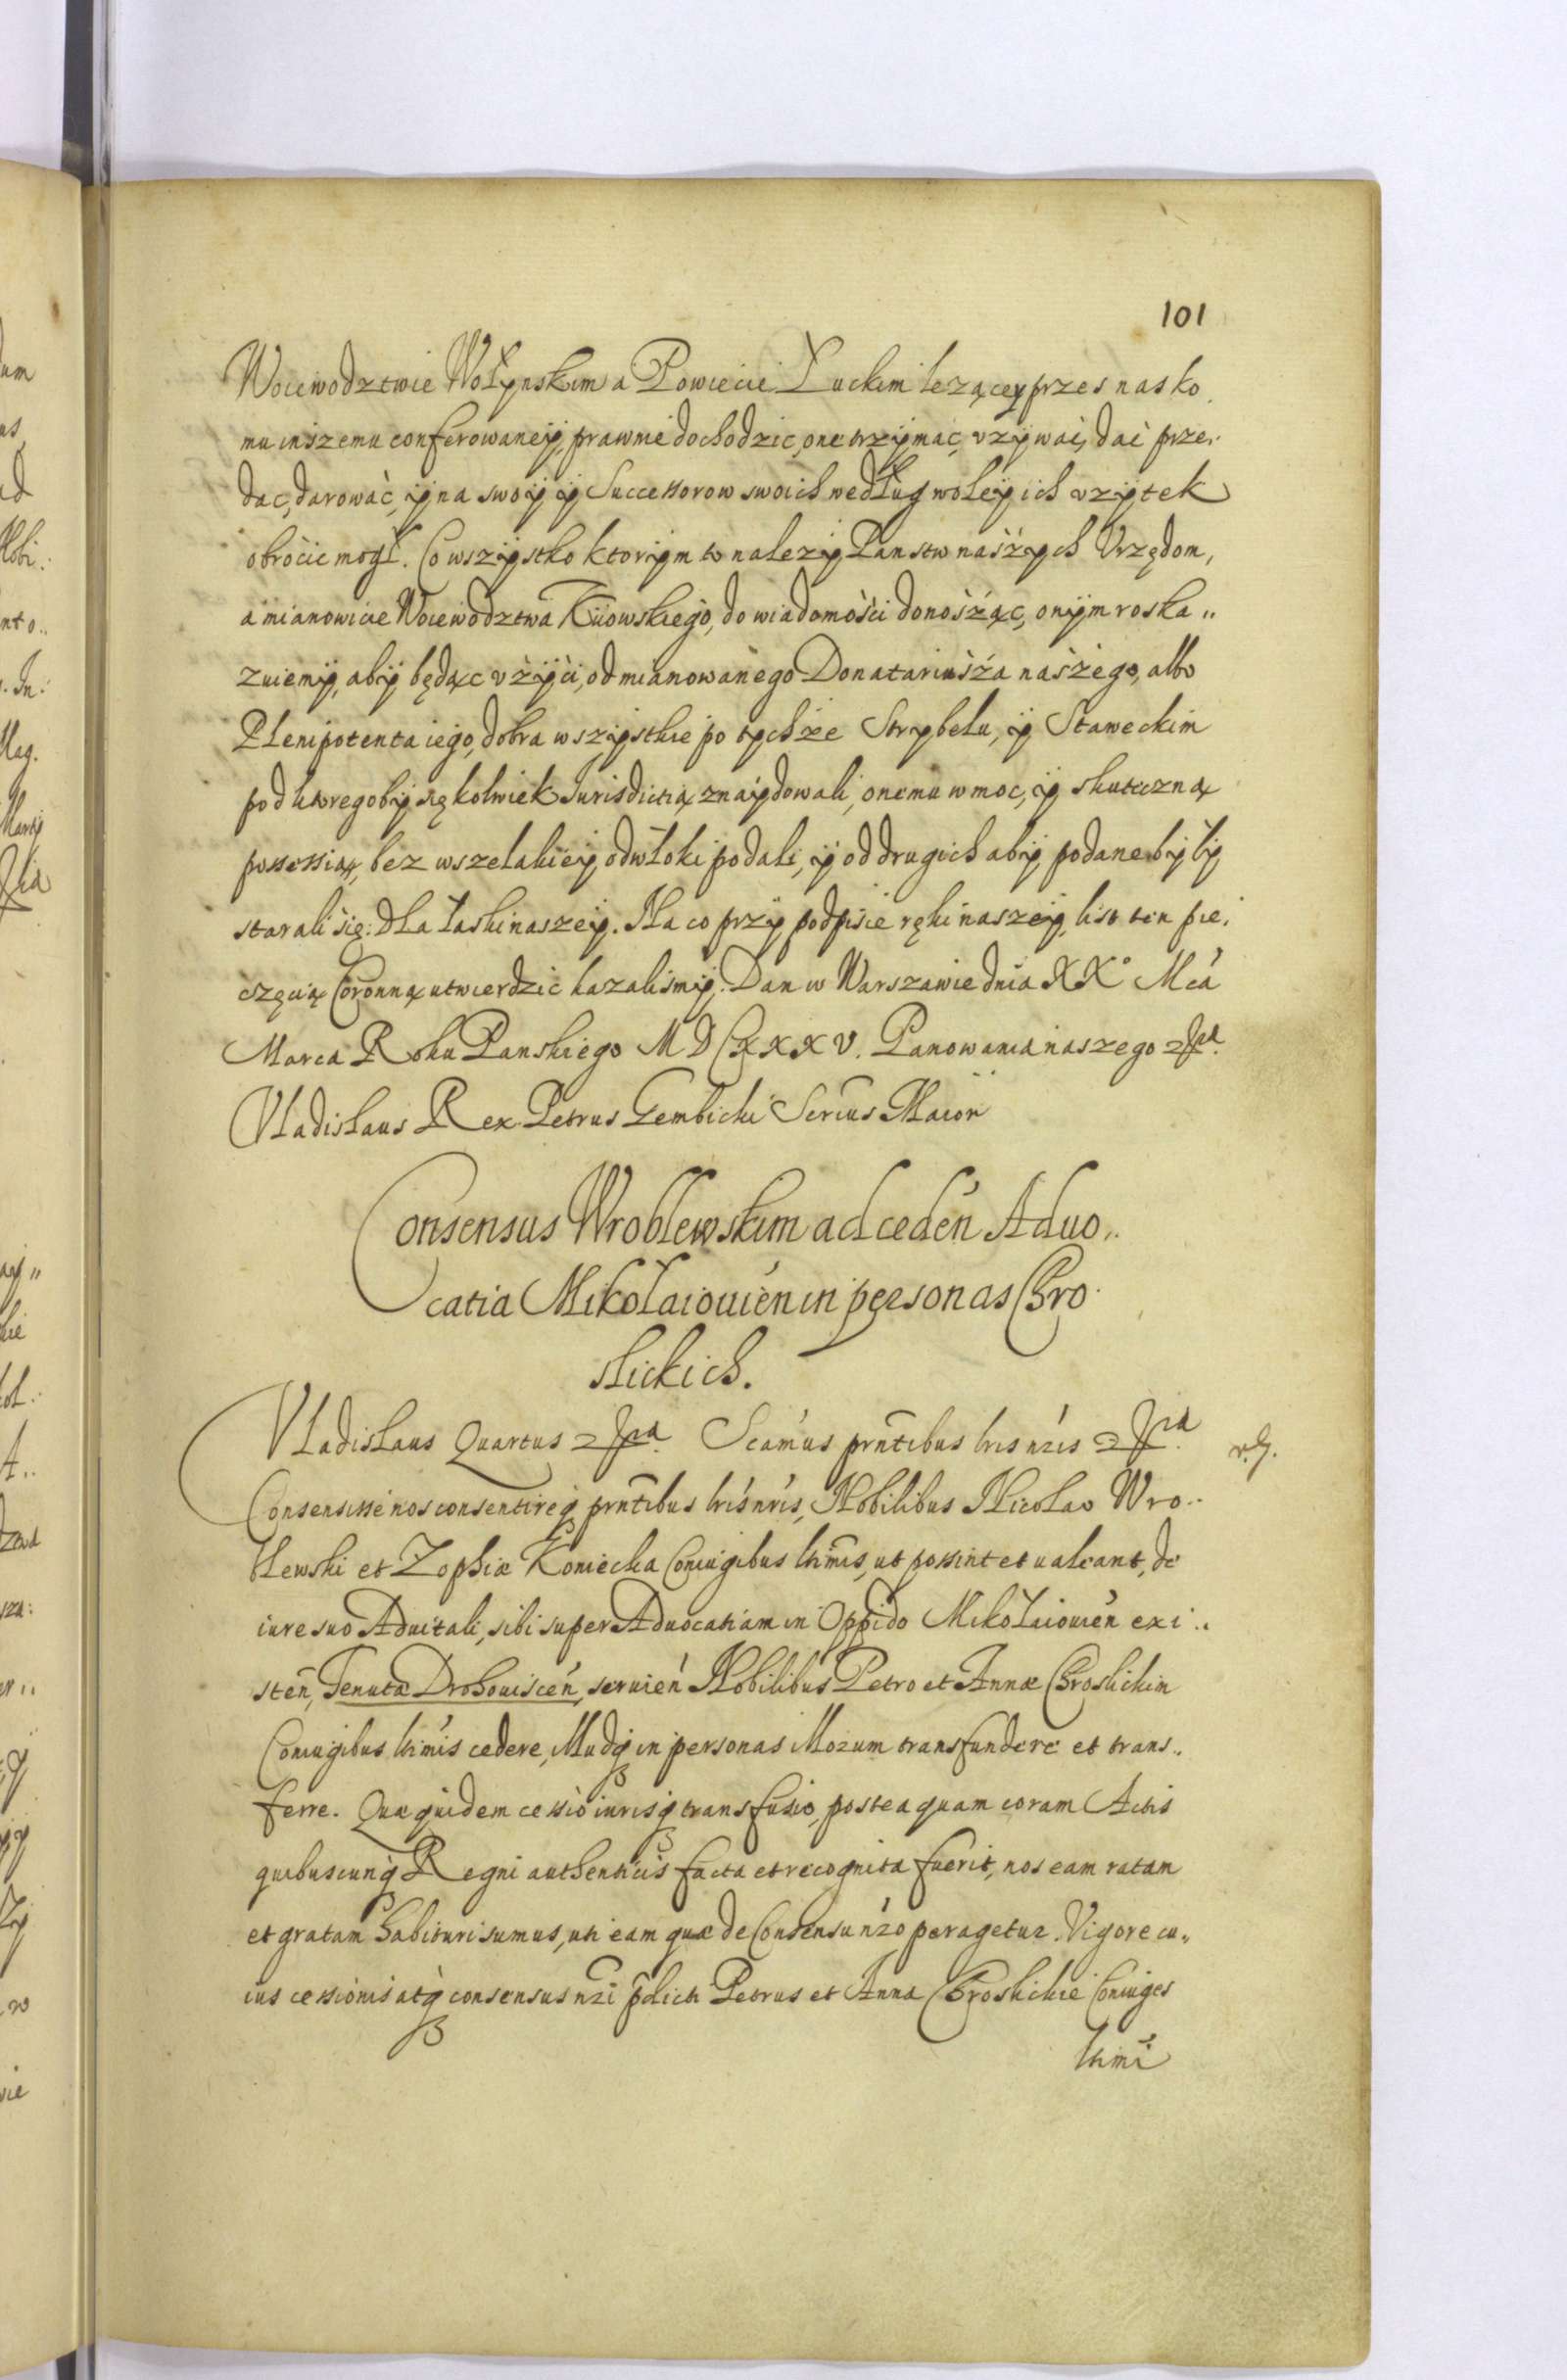 101
Woiewodztwie Wołynskim a Powiecie Łuckim lezącey przes nas ko
mu inszemu conferowaney, prawnie dochodzic, one trzymac, vzywać, dać prze,,
dac, darować, y na swoy y Successorow swoich według woley ich vzytek
obrocic mogł. Co wszystko ktorym to nalezy Panstw naszych Vrzędom,
a mianowicie Woiewodztwa Kiiowskiego, do wiadomości donosząc, onym roska,,
zuiemy, aby będąc vżyći, od mianowanego Donatariusza naszego, albo
Plenipotenta iego, dobra wszystkie po tychże Strybelu, y Staweckim
pod ktoregoby się kolwiek Jurisdictią znaydowali, onemu w moc, y skuteczną
possessią, bez wszelakiey odwłoki podali, y od drugich aby podane były
starali się: dla łaski naszey. Na co przy podpisie ręki naszey, list ten pie,
częcią Coronną utwierdzić kazalismy. Dan w Warszawie dnia XX° Mca
Marca Roku Panskiego MDCXXXV. Panowania naszego
Vladislaus Rex Petrus Gembicki Secrius Maior
Consensus Wroblewskim ad ceden Aduo,,
catia Mikołaiouien in personas Chro
slickich.
Vladislaus Quartus Scamus prntibus lris nris
r. g.
Consensisse nos consentireq prntibus lris nris, Nobilibus Nicolao Wro,,
blewski et Zophiæ Koniecka Coniugibus ltimis, ut possint et ualeant, de
iure suo Aduitali, sibi super Aduocatiam in Oppido Mikołaiouien exi,,
sten, Tenutæ Drohouiscen, seruien Nobilibus Petro et Annæ Chroslickim
Coniugibus ltimis cedere, Illudq in personas Illorum transfundere et trans,,
ferre. Quæ quidem cessio iurisq transfusio, postea quam coram Actis
quibuscunq Regni authenticis facta et recognita fuerit, nos eam ratam
et gratam habituri sumus, uti eam quæ de Consensu nro peragetur. Vigore cu,,
ius cessionis atq consensus nri pdicti Petrus et Anna Chroslickie Coniuges
ltimi